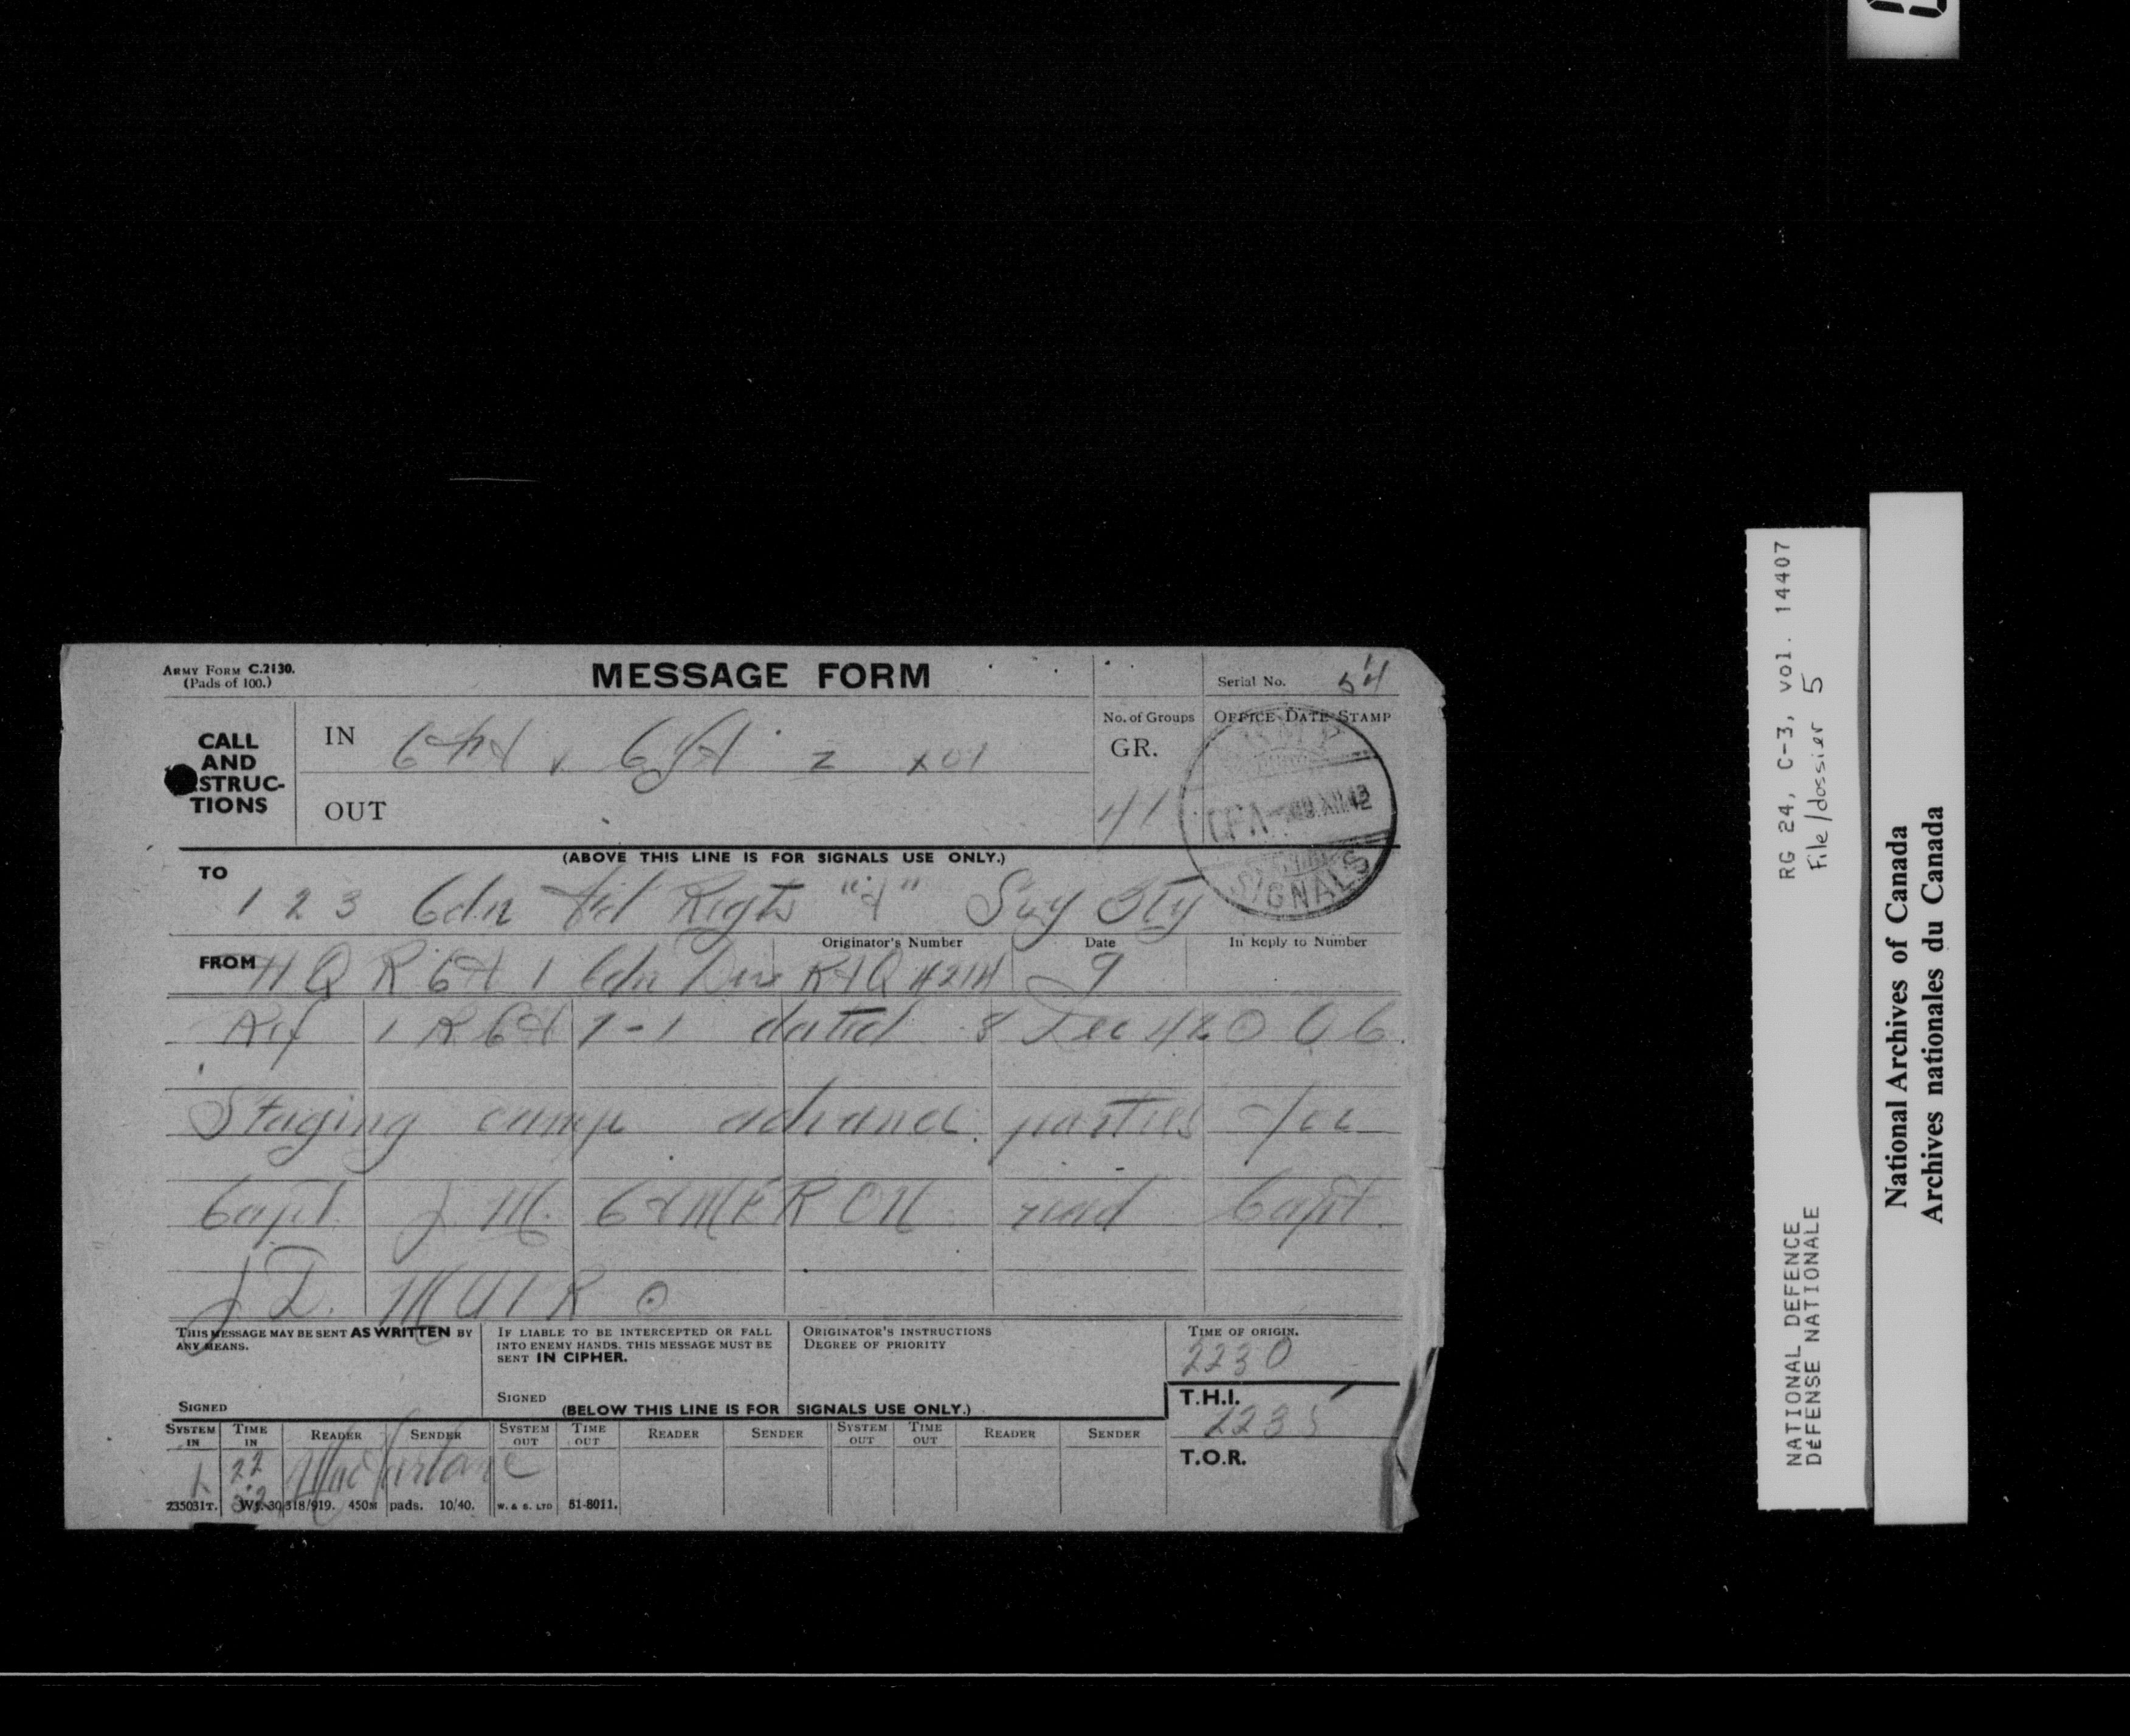 ARMY FORM C.2130.
(Pads of 100.)
MESSAGE FORM
Serial No. 54
CALL AND STRUC-TIONS
IN Z X01
OUT
No. of Groups
GR.
41
OFFICE DATE STAMP
SIGNALS
(ABOVE THIS LINE IS FOR SIGNALS USE ONLY.)
TO
1 2 3 Cdn Fd Regts "A" Svy Bty
FROM HQ RCA 1 Cdn Div
Originator's Number
Date 9
In Reply to Number
Ref 1 RCA 7-1 dated 8 Dec 42
Staging camp advance parties for
Capt. J M. CAMERON read Capt.
J D. MUIR
THIS MESSAGE MAY BE SENT AS WRITTEN BY ANY MEANS.
SIGNED
IF LIABLE TO BE INTERCEPTED OR FALL INTO ENEMY HANDS. THIS MESSAGE MUST BE SENT IN CIPHER.
SIGNED
ORIGINATOR'S INSTRUCTIONS
DEGREE OF PRIORITY
TIME OF ORIGIN.
2230
T.H.I.
2235
T.O.R.
(BELOW THIS LINE IS FOR SIGNALS USE ONLY.)
SYSTEM IN TIME IN READER SENDER SYSTEM OUT TIME OUT READER SENDER SYSTEM OUT TIME OUT READER SENDER
22 MacFarlane
235031T. Wt. 30318/919. 450M pads. 10/40. W. & S. LTD 51-8011.
RG 24, C-3, vol. 14407
File/dossier 5
NATIONAL DEFENCE
DÉFENSE NATIONALE
National Archives of Canada
Archives nationales du Canada